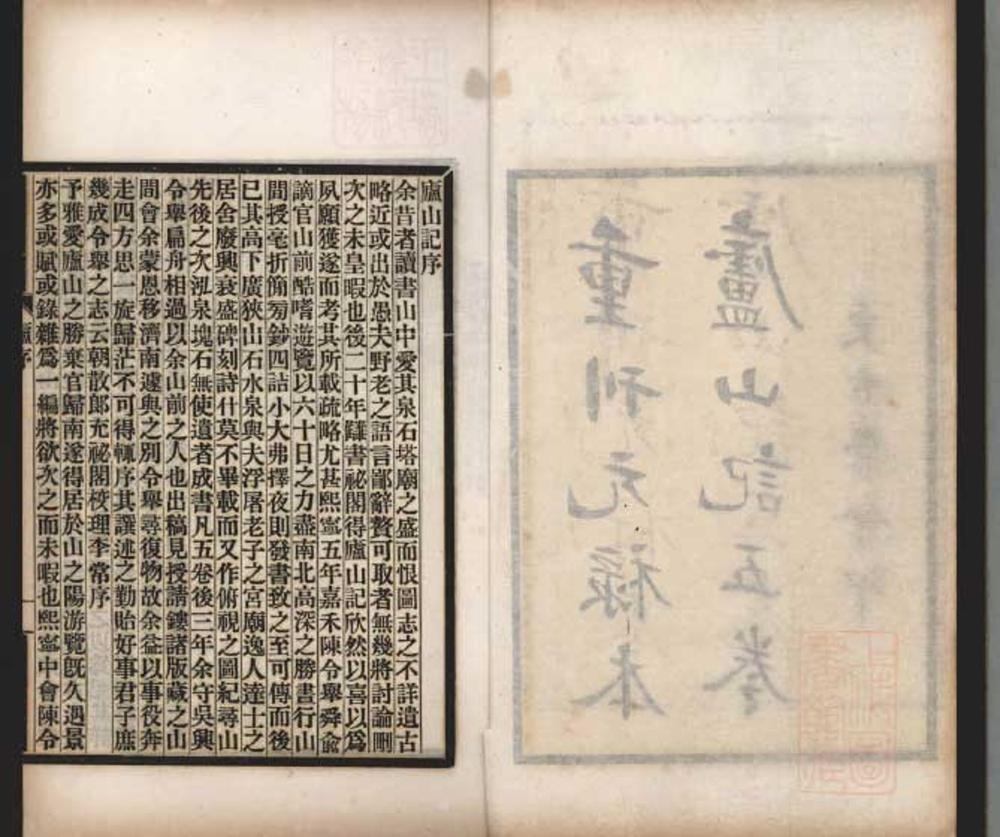 重刊元祿本
廬山記五卷
廬山記序
余昔者讀書山中愛其泉石塔廟之盛而恨圖志之不詳遺古
略近或出於愚夫野老之語言鄙辭贅可取者無幾將討論刪
次之未皇暇也後二十年讎書祕閣得廬山記欣然以喜以為
夙願獲遂而考其所載疏略尤甚熙寧五年嘉禾陳令舉舜俞
謫官山前酷嗜遊覽以六十日之力盡南北高深之勝晝行山
間授毫折簡匆鈔四詰小大弗擇夜則發書攷之至可傳而後
已其高下廣狹山石水泉與夫浮屠老子之宮廟逸人達士之
居舍廢興衰盛碑刻詩什莫不畢載而又作俯視之圖紀尋山
先後之次泓泉塊石無使遺者成書凡五卷後三年余守吳興
令舉扁舟相過以余山前之人也出稿見授請鏤諸版藏之山
間會余蒙恩移濟南遽與之別令舉尋復物故余益以事役奔
走四方思一旋歸茫不可得輒序其譔述之勤貽好事君子庶
幾成令舉之志云朝散郎充祕閣校理李常序
予雅愛廬山之勝棄官歸南遂得居於山之陽游覽旣久遇景
亦多或賦或錄雜為一編將欲次之而未暇也熙寧中會陳令